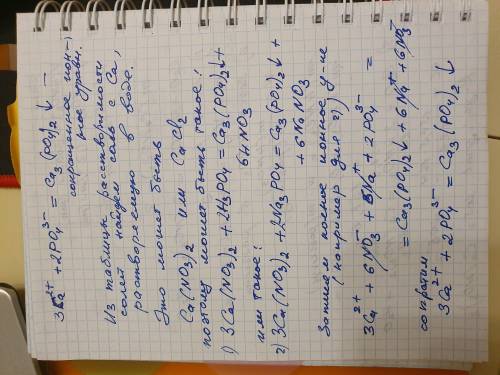 3Ca²⁺ + 2PO₄³⁻ = Ca₃(PO₄)₂↓ –
сокращенное ион-
ное уравн.
Из таблицы растворимости
солей найдем соль с Ca,
растворимую в воде.
Это может быть
Ca(NO₃)₂ или CaCl₂
поэтому может быть такое:
1) 3Ca(NO₃)₂ + 2H₃PO₄ = Ca₃(PO₄)₂↓ +
6HNO₃
или такое:
2) 3Ca(NO₃)₂ + 2Na₃PO₄ = Ca₃(PO₄)₂↓ +
+ 6NaNO₃
Запишем полное ионное у-ие
(например для 2)
3Ca²⁺ + 6NO₃⁻ + 6Na⁺ + 2PO₄³⁻ =
= Ca₃(PO₄)₂↓ + 6Na⁺ + 6NO₃⁻
сократим
3Ca²⁺ + 2PO₄³⁻ = Ca₃(PO₄)₂↓